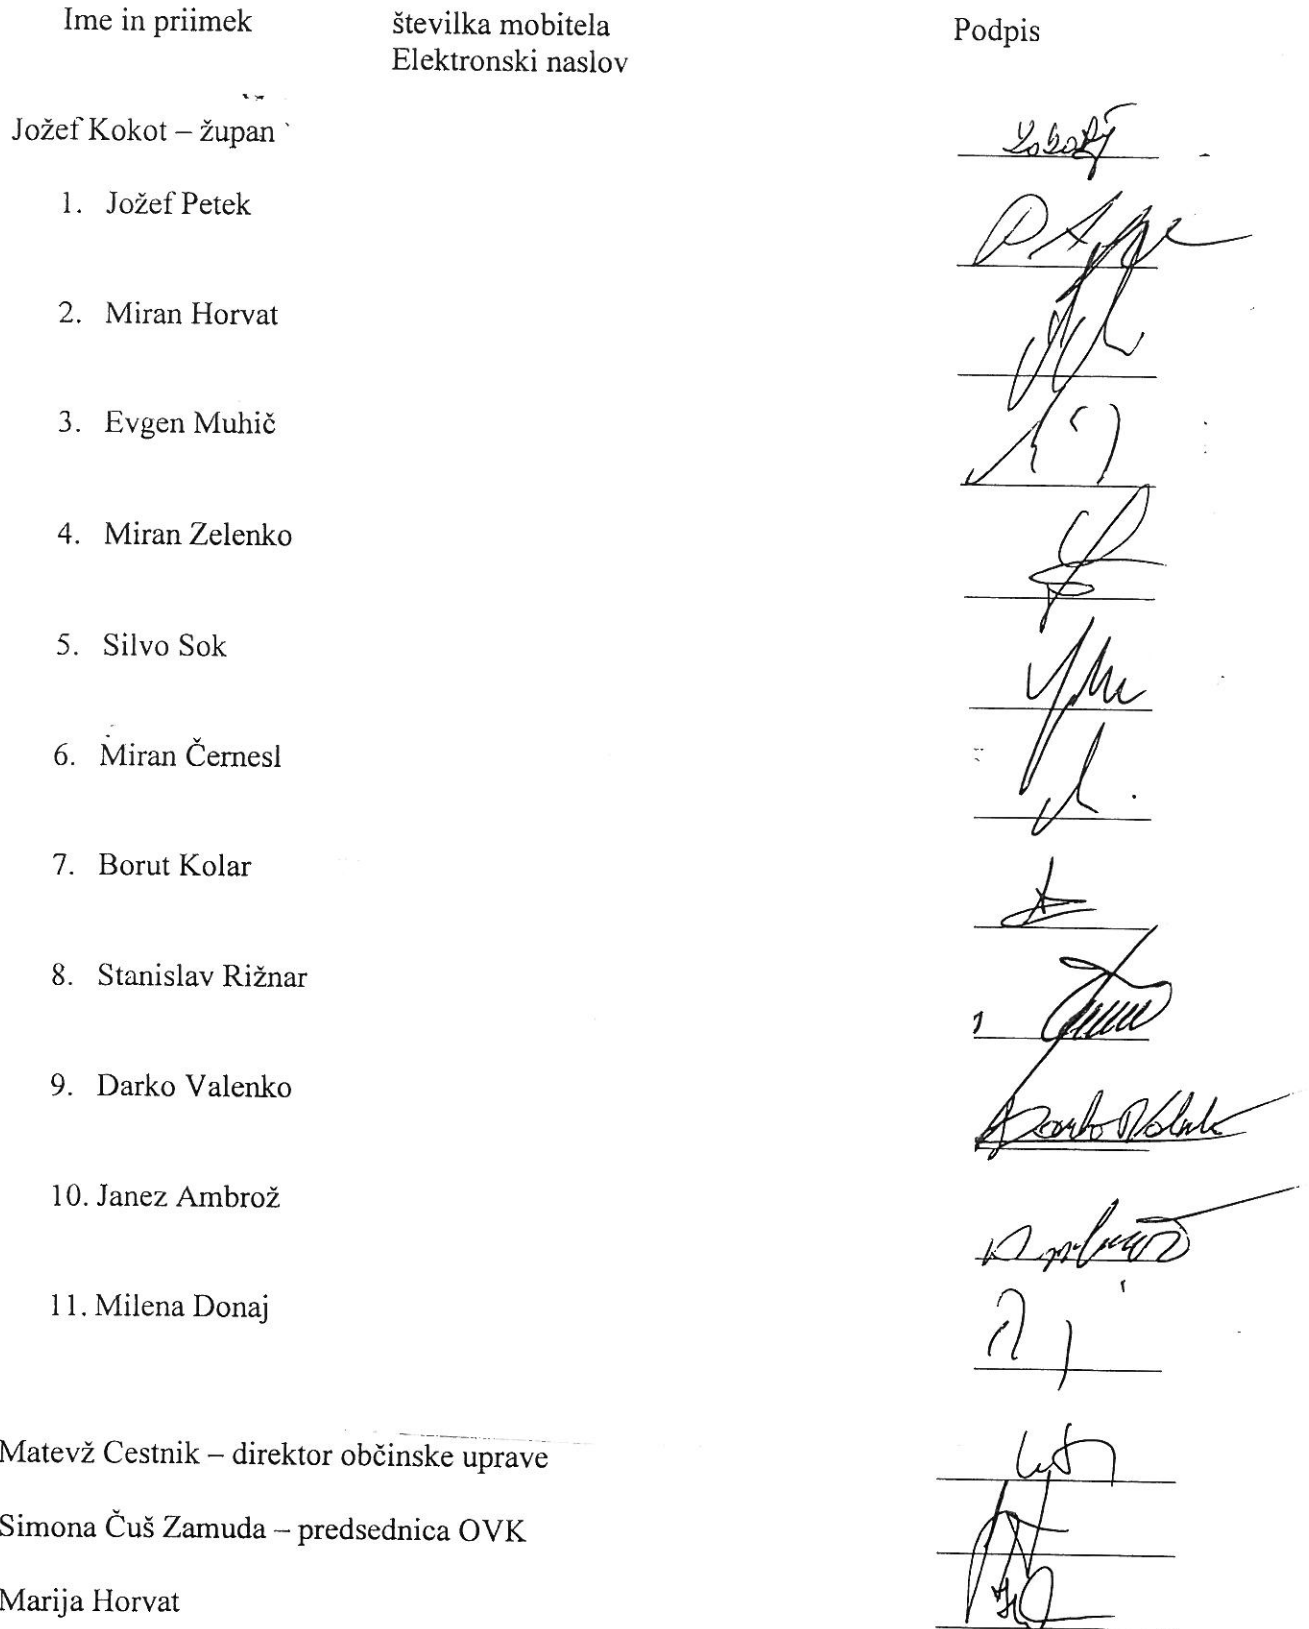 Ime in priimek številka mobitela Podpis
Elektronski naslov
Jožef Kokot – župan
1. Jožef Petek
2. Miran Horvat
3. Evgen Muhič
4. Miran Zelenko
5. Silvo Sok
6. Miran Černesl
7. Borut Kolar
8. Stanislav Rižnar
9. Darko Valenko
10. Janez Ambrož
11. Milena Donaj
Matevž Cestnik – direktor občinske uprave
Simona Čuš Zamuda – predsednica OVK
Marija Horvat